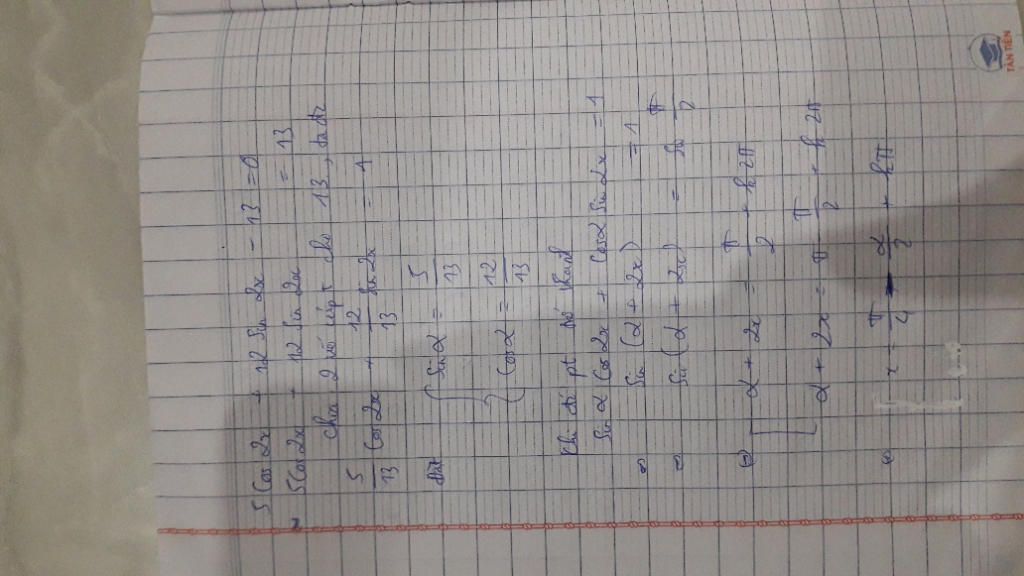 5 Cos 2x + 12 Sin 2x - 13 = 0
5 Cos 2x + 12 Sin 2x = 13
Chia 2 vế cho 13, ta đc
5/13 Cos 2x + 12/13 Sin 2x = 1
Đặt { Sin α = 5/13
{ Cos α = 12/13
Khi đó pt trở thành
Sin α Cos 2x + Cos α Sin 2x = 1
⇔ Sin (α + 2x) = 1
⇔ Sin (α + 2x) = Sin π/2
⇔ [ α + 2x = π/2 + k2π
[ α + 2x = π - π/2 + k2π
⇔ x = π/4 - α/2 + kπ
TÂN TIẾN